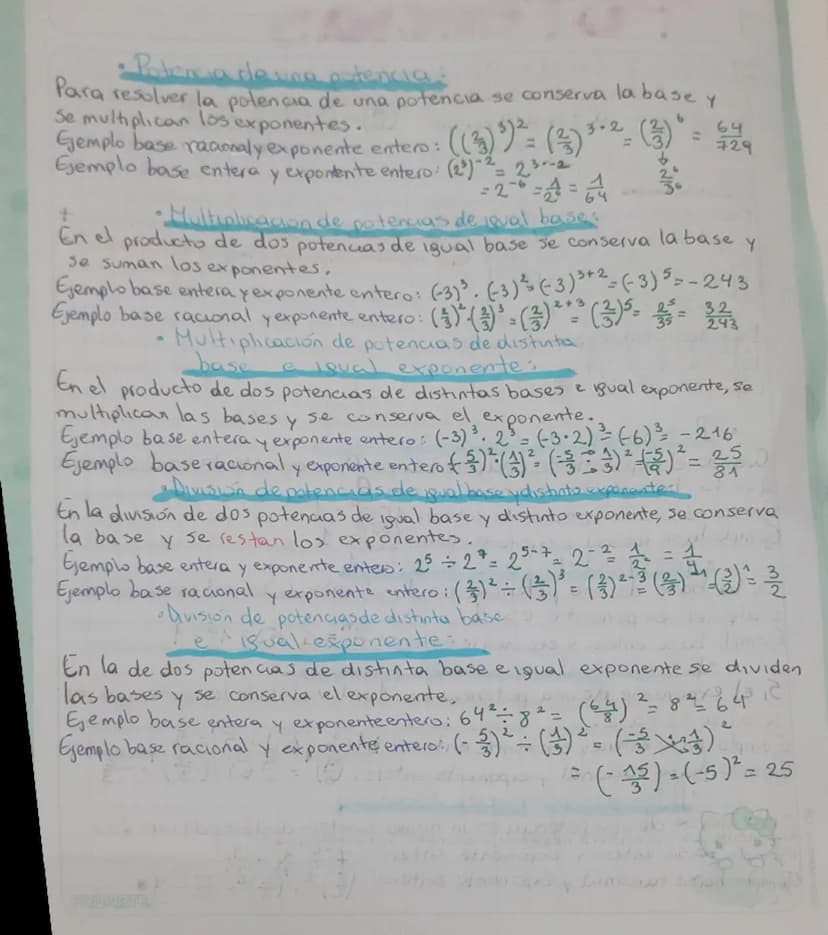 • Potencia de una potencia:
Para resolver la potencia de una potencia se conserva la base y
se multiplican los exponentes.
Ejemplo base racional y exponente entero: ((2/3)³)² = (2/3)^3·2 = (2/3)⁶ = 64/729
2⁶/3⁶
Ejemplo base entera y exponente entero: (2³)⁻² = 2^3·-2
= 2⁻⁶ = 1/2⁶ = 1/64
• Multiplicación de potencias de igual base:
En el producto de dos potencias de igual base se conserva la base y
se suman los exponentes.
Ejemplo base entera y exponente entero: (-3)³ · (-3)² = (-3)³⁺² = (-3)⁵ = -243
Ejemplo base racional y exponente entero: (2/3)² · (2/3)³ = (2/3)²⁺³ = (2/3)⁵ = 2⁵/3⁵ = 32/243
• Multiplicación de potencias de distinta
base e igual exponente:
En el producto de dos potencias de distintas bases e igual exponente, se
multiplican las bases y se conserva el exponente.
Ejemplo base entera y exponente entero: (-3)³ · 2³ = (-3·2)³ = (-6)³ = -216
Ejemplo base racional y exponente entero (-5/3)² · (1/3)² = (-5/3 · 1/3)² = (-5/9)² = 25/81
• División de potencias de igual base y distinto exponente:
En la división de dos potencias de igual base y distinto exponente, se conserva
la base y se restan los exponentes.
Ejemplo base entera y exponente entero: 2⁵ ÷ 2⁷ = 2⁵⁻⁷ = 2⁻² = 1/2² = 1/4
Ejemplo base racional y exponente entero: (2/3)² ÷ (2/3)³ = (2/3)²⁻³ = (2/3)⁻¹ = (3/2)¹ = 3/2
• División de potencias de distinta base
e igual exponente:
En la de dos potencias de distinta base e igual exponente se dividen
las bases y se conserva el exponente.
Ejemplo base entera y exponente entero: 64² ÷ 8² = (64/8)² = 8² = 64
Ejemplo base racional y exponente entero: (-5/3)² ÷ (1/3)² = (-5/3 ÷ 1/3)²
= (-15/3) = (-5)² = 25